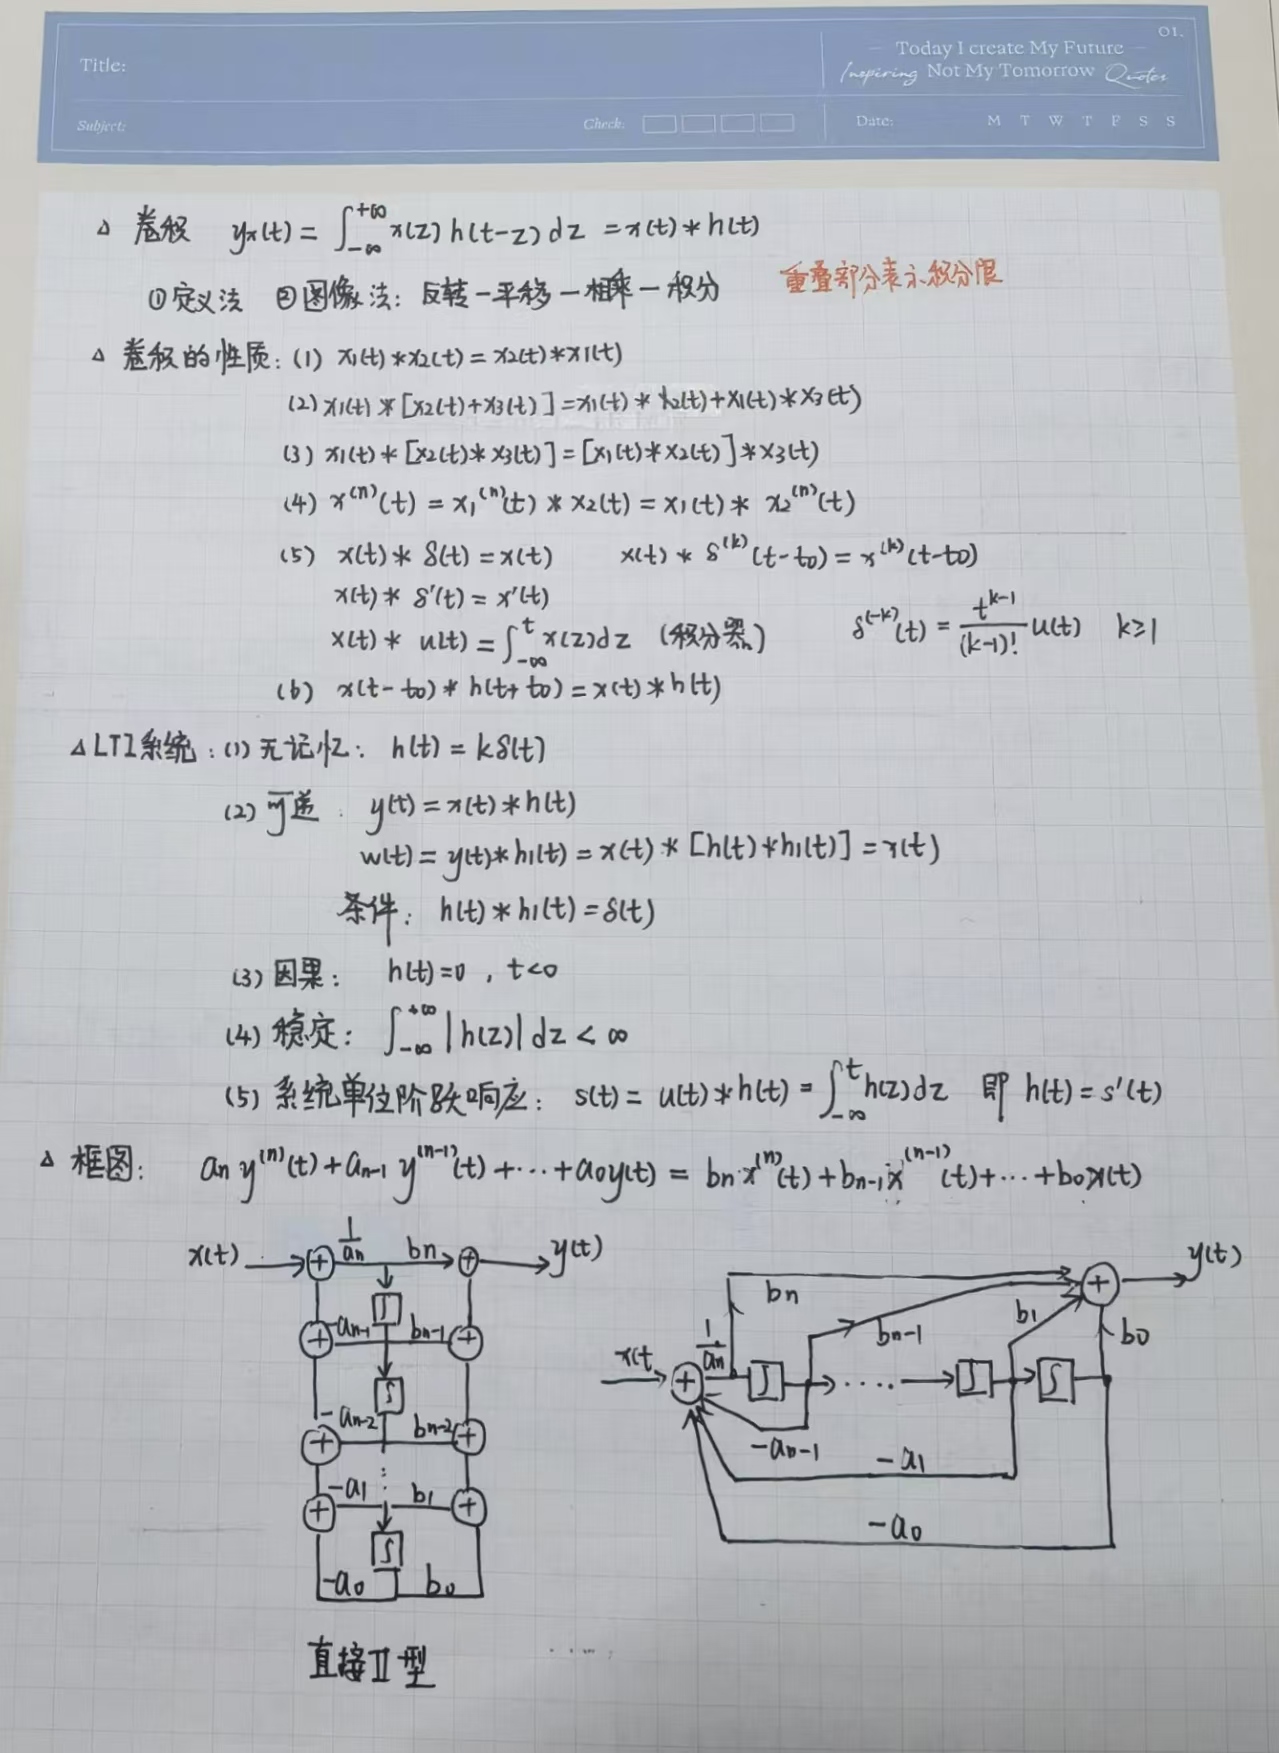 01.
Title:
Today I create My Future
Inspiring Not My Tomorrow Quotes
Subject:
Check:
Date:
M T W T F S S
△ 卷积 yx(t) = ∫_{-∞}^{+∞} x(z) h(t-z) dz = x(t) * h(t)
①定义法 ②图像法: 反转-平移-相乘-积分 重叠部分表示积分限
△ 卷积的性质: (1) x1(t)*x2(t) = x2(t)*x1(t)
(2) x1(t) * [x2(t)+x3(t)] = x1(t) * x2(t) + x1(t) * x3(t)
(3) x1(t) * [x2(t)*x3(t)] = [x1(t)*x2(t)] * x3(t)
(4) x^{(n)}(t) = x1^{(n)}(t) * x2(t) = x1(t) * x2^{(n)}(t)
(5) x(t) * δ(t) = x(t) x(t) * δ^{(k)}(t-t0) = x^{(k)}(t-t0)
x(t) * δ'(t) = x'(t)
x(t) * u(t) = ∫_{-∞}^{t} x(z)dz (积分器) δ^{(-k)}(t) = \frac{t^{k-1}}{(k-1)!} u(t) k≥1
(6) x(t-t0) * h(t+t0) = x(t) * h(t)
△ LTI系统: (1) 无记忆: h(t) = kδ(t)
(2) 可逆: y(t) = x(t) * h(t)
w(t) = y(t)*h1(t) = x(t) * [h(t)*h1(t)] = x(t)
条件: h(t) * h1(t) = δ(t)
(3) 因果: h(t)=0 , t<0
(4) 稳定: ∫_{-∞}^{+∞} |h(z)| dz < ∞
(5) 系统单位阶跃响应: s(t) = u(t)*h(t) = ∫_{-∞}^{t} h(z)dz 即 h(t) = s'(t)
△ 框图: an y^{(n)}(t) + an-1 y^{(n-1)}(t) + ··· + a0y(t) = bn x^{(n)}(t) + bn-1 x^{(n-1)}(t) + ··· + b0x(t)
x(t) + 1/an bn + y(t)
∫
+ -an-1 bn-1 +
∫
-an-2 bn-2
+ +
⋮
-a1 b1
+ +
∫
-a0 b0
直接Ⅱ型
y(t)
bn +
bn-1 b1 b0
x(t 1/an
+ ∫ ···· ∫ ∫
-an-1 -a1
-a0